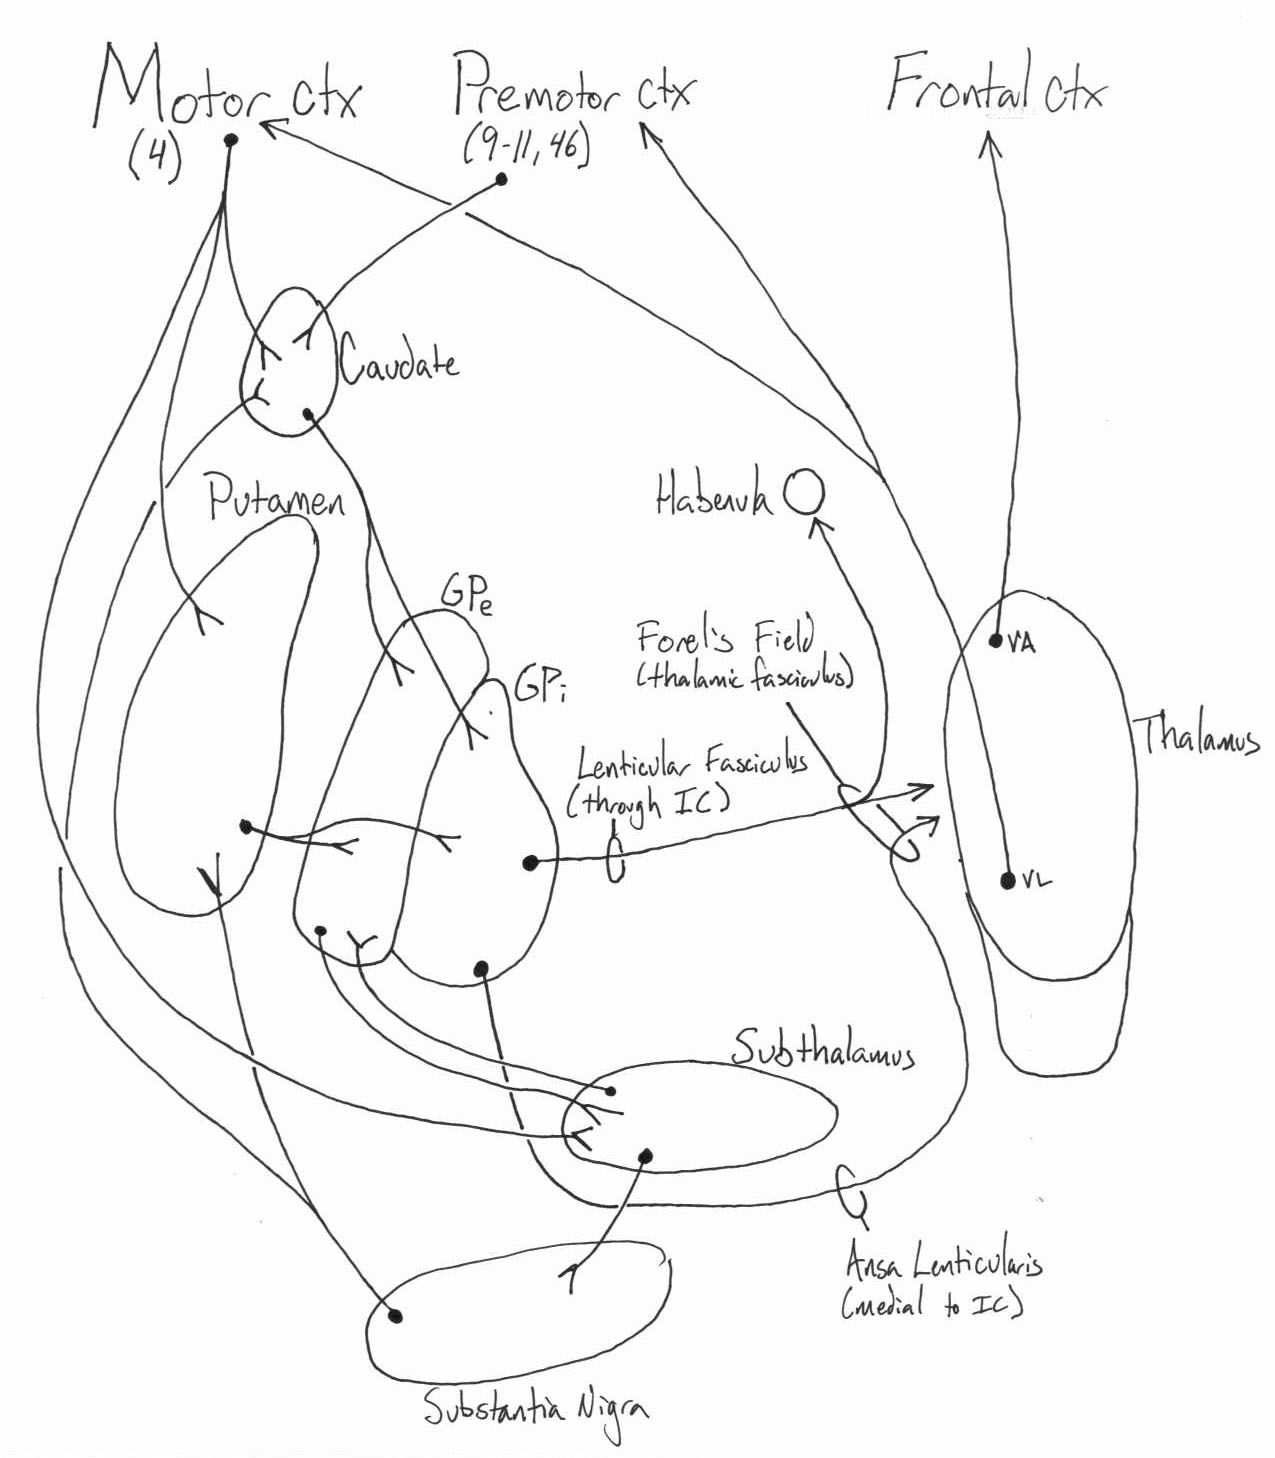 Motor ctx
(4)
Premotor ctx
(9-11, 46)
Frontal ctx
Caudate
Putamen
Habenula
GPe
GPi
Forel's Field
(thalamic fasciculus)
Lenticular Fasciculus
(through IC)
VA
Thalamus
VL
Subthalamus
Ansa Lenticularis
(medial to IC)
Substantia Nigra